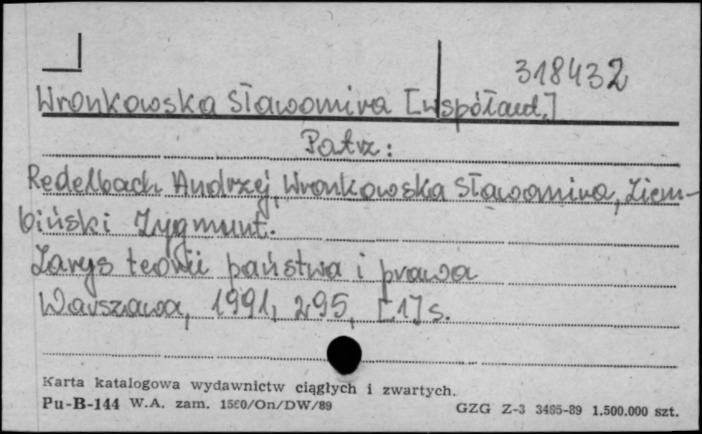 318432
Wronkowska Sławomira [współaut.]
Patrz:
Redelbach Andrzej, Wronkowska Sławomira, Ziem-
biński Zygmunt.
Zarys teorii państwa i prawa
Warszawa, 1991, 295, [1] s.
Karta katalogowa wydawnictw ciągłych i zwartych.
Pu-B-144 W.A. zam. 1560/On/DW/89 GZG Z-3 3465-89 1.500.000 szt.